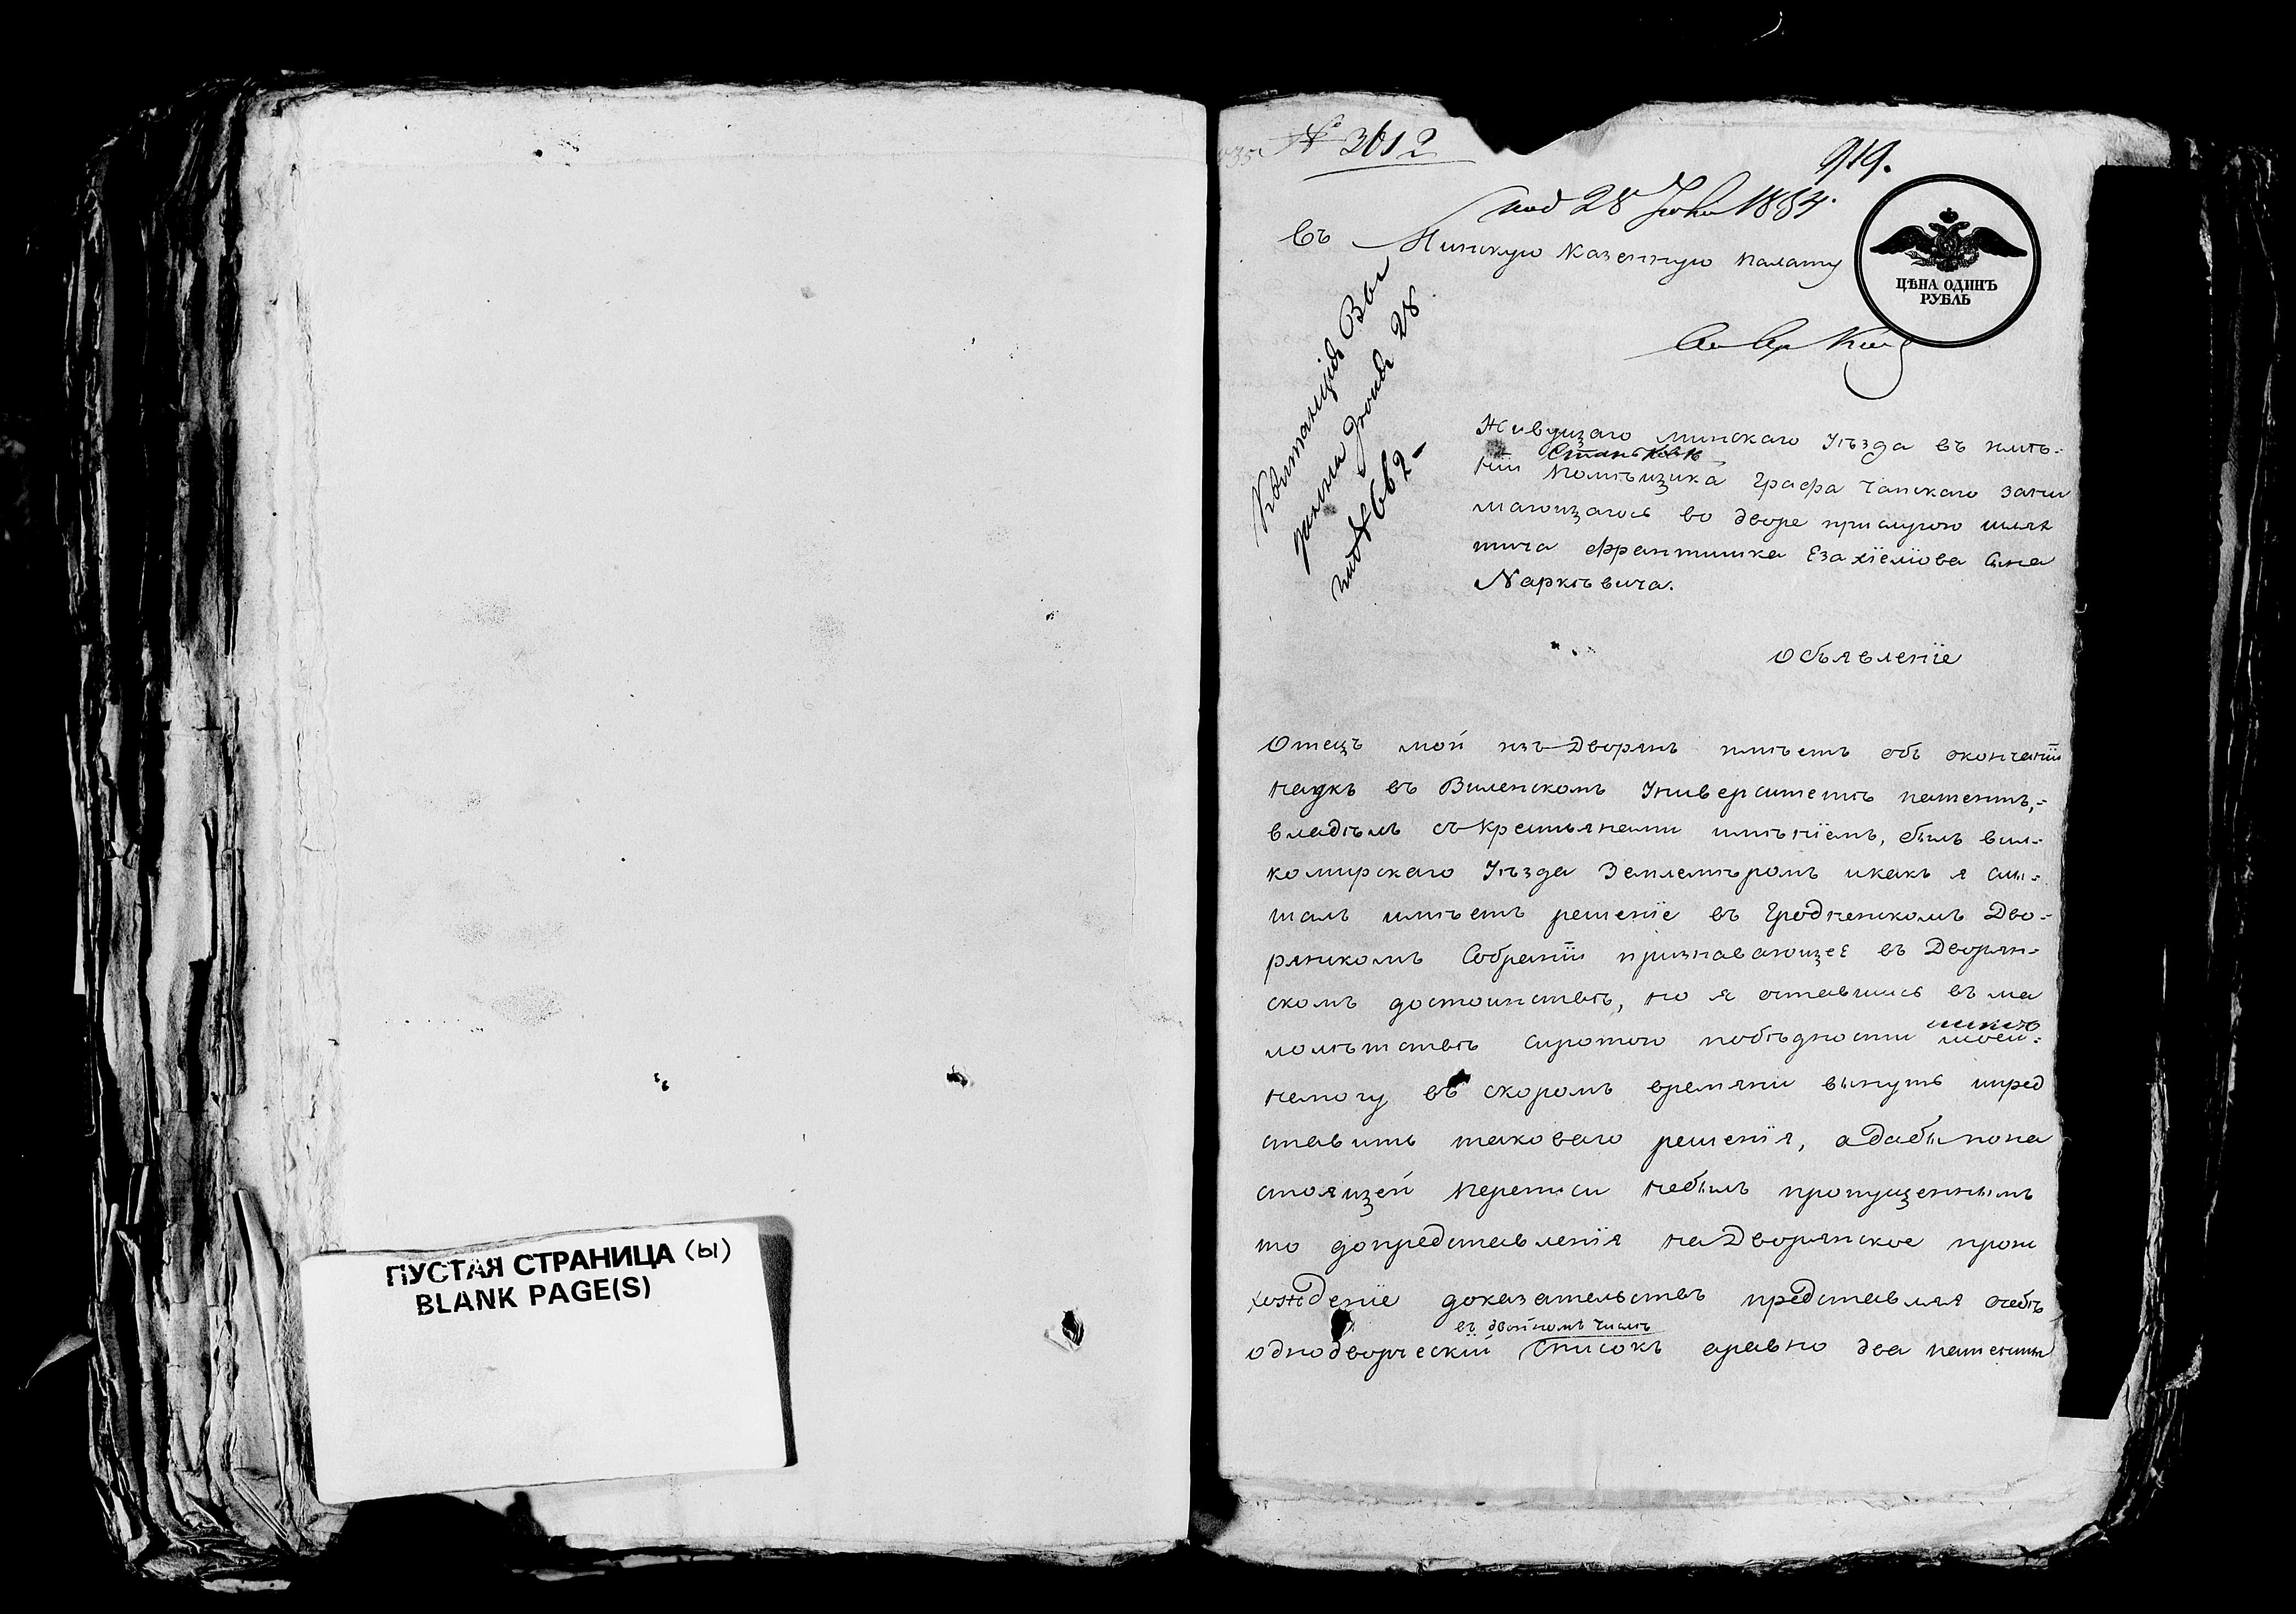 ПУСТАЯ СТРАНИЦА (ы)
BLANK PAGE(S)
№ 3612
919.
под 28 Июня 1834.
Въ Минскую Казенную палату
ЦѢНА ОДИНЪ
РУБЛЬ
Квитанція Вы
дана Іюня 28
№ 662
Живущаго минскаго Уѣзда въ имѣ-
ніи Станьковѣ Помѣщика Графа Чапскаго зани
мающагось во дворе прислугою шлях
тича Франтишка Езахіелюва сына
Наркѣвича.
Объявленіе
Отецъ мой изъ Дворянъ имѣетъ объ окончаніи
наукъ въ Виленскомъ Университетѣ патентъ,-
владѣлъ съ крестьянами имѣніемъ, былъ вил-
комирскаго Уѣзда Землемѣромъ икакъ я слы-
шалъ имѣетъ решеніе въ Гродненскомъ Дво-
рянскомъ Собраніи признавающее въ Дворян-
скомъ достоинствѣ, но я оставшись въ ма
лолѣтствѣ сиротою побѣдности моей
немогу въ скоромъ времяни вынуть ипред
ставить таковаго решенія, адабы пона
стоящей Переписи небылъ пропущеннымъ
то допредставленія на Дворянское проис
хожденіе доказательствъ представляя осебѣ
однодворческій въ двойномъ числѣ списокъ аравно два патента